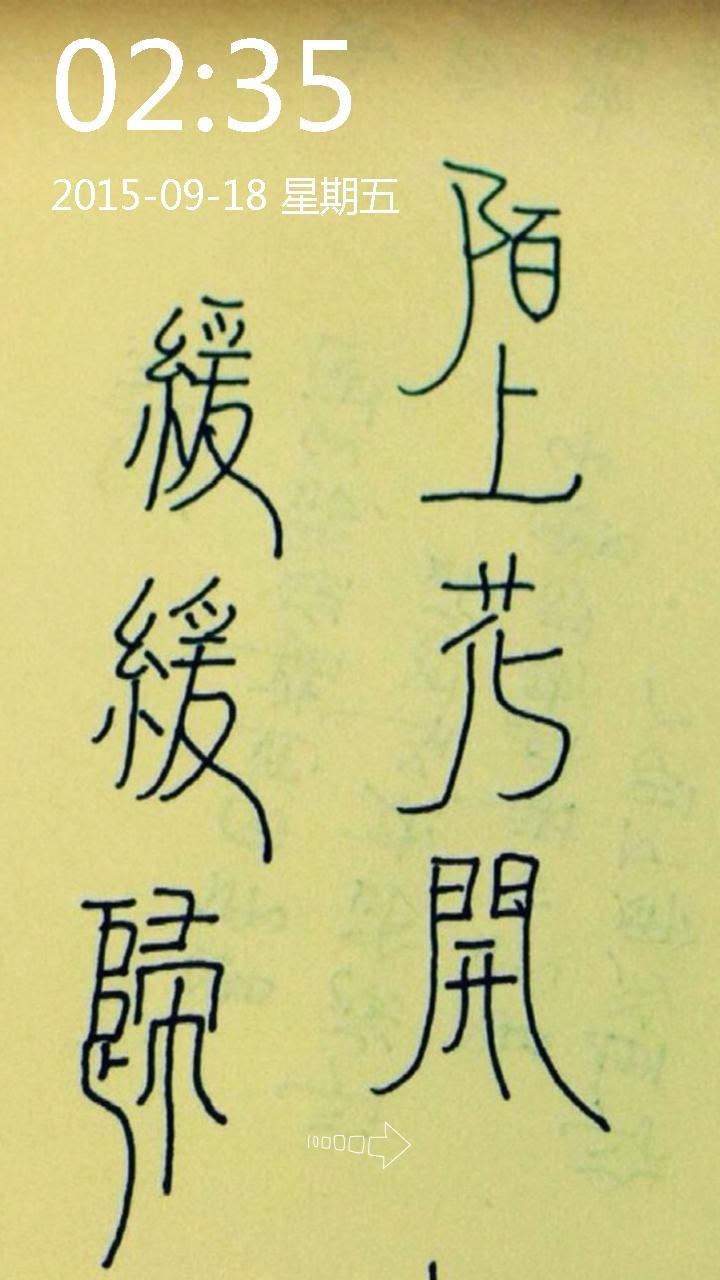 02:35
2015-09-18 星期五
陌上花開
緩緩歸